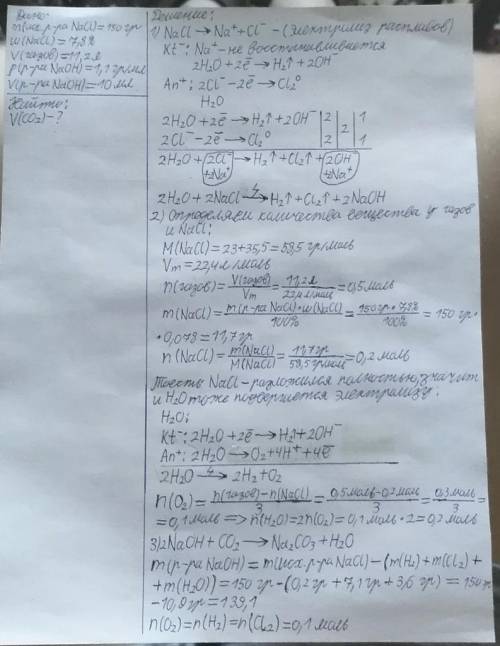 Дано:
m(исх.р-ра NaCl)=150 гр
w(NaCl)=7,8%
V(газов)=11,2 л
ρ(р-ра NaOH)=1,1 гр/мл
V(р-ра NaOH)=10 мл
Найти:
V(CO₂)-?
Решение:
1) NaCl→Na⁺+Cl⁻ - (электролиз расплавов)
Kt⁻: Na⁺-не восстанавливается
2H₂O+2e̅→H₂↑+2OH⁻
An⁺: 2Cl⁻-2e̅→Cl₂⁰
H₂O
2H₂O+2e̅→H₂↑+2OH⁻ |2| |1
2Cl⁻-2e̅→Cl₂⁰ |2|2|1
2H₂O+2Cl⁻→H₂↑+Cl₂↑+2OH⁻
+2Na⁺ +2Na⁺
2H₂O+2NaCl→H₂↑+Cl₂↑+2NaOH
2) Определяем количества вещества у газов
и NaCl:
M(NaCl)=23+35,5=58,5 гр/моль
Vm=22,4 л/моль
n(газов)=V(газов)/Vm=11,2 л/22,4 л/моль=0,5 моль
m(NaCl)=m(р-ра NaCl)·w(NaCl)/100%=150гр·7,8%/100%=150 гр·
·0,078=11,7 гр
n(NaCl)=m(NaCl)/M(NaCl)=11,7гр/58,5гр/моль=0,2 моль
Тоесть NaCl-разложился полностью, значит
и H₂O тоже подвергается электролизу:
H₂O:
Kt⁻: 2H₂O+2e̅→H₂↑+2OH⁻
An⁺: 2H₂O→O₂+4H⁺+4e̅
2H₂O→2H₂+O₂
n(O₂)=n(газов)-n(NaCl)/3=0,5моль-0,2моль/3=0,3моль/3=
=0,1моль=>n(H₂O)=2n(O₂)=0,1моль·2=0,2моль
3) 2NaOH+CO₂→Na₂CO₃+H₂O
m(р-ра NaOH)=m(исх.р-ра NaCl)-(m(H₂)+m(Cl₂)+
+m(H₂O))=150 гр-(0,2гр+7,1гр+3,6 гр)=150гр
-10,9гр=139,1
n(O₂)=n(H₂)=n(Cl₂)=0,1моль